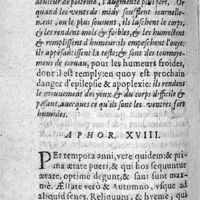 douleur de poitrine, s'augmente plus fort. Or
quand les vents de midy soufflent journelle-
ment ou le plus souvent, ils laschent le corps,
& les rendent mols & foibles, & les humectent
& remplissent d'humeur: ils empeschent l'ouye:
ils appesantissent la teste: & sont des tremoi-
gneux de cerueau, pour les humeurs froides,
dont il est remply: en quoy est prochain
danger d'epilepsie & apoplexie: ils rendent
le mouuement des yeux & du corps difficile &
pesant, auecques ce qu'ils ont les ventres fort
humides.
APHOR. XVIII.
PEr tempora anni, vere quidem & pri-
ma æstate pueri, & qui hos sequuntur
ætate, optimè degunt, & sani sunt maxi-
mè. Æstate verò & Autumno, vsque ad
aliquid senes. Reliquum, & hyeme, qui